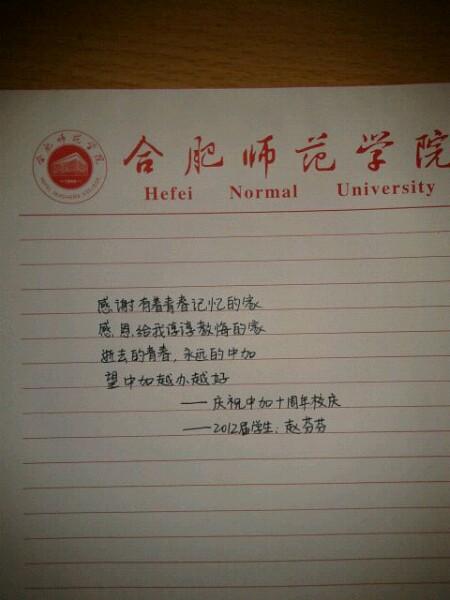 合肥师范学院
合肥师范学院
Hefei Normal University
感谢有着青春记忆的家
感恩给我谆谆教悔的家
逝去的青春,永远的中加
望中加越办越好
——庆祝中加十周年校庆
——2012届学生:赵芬芬